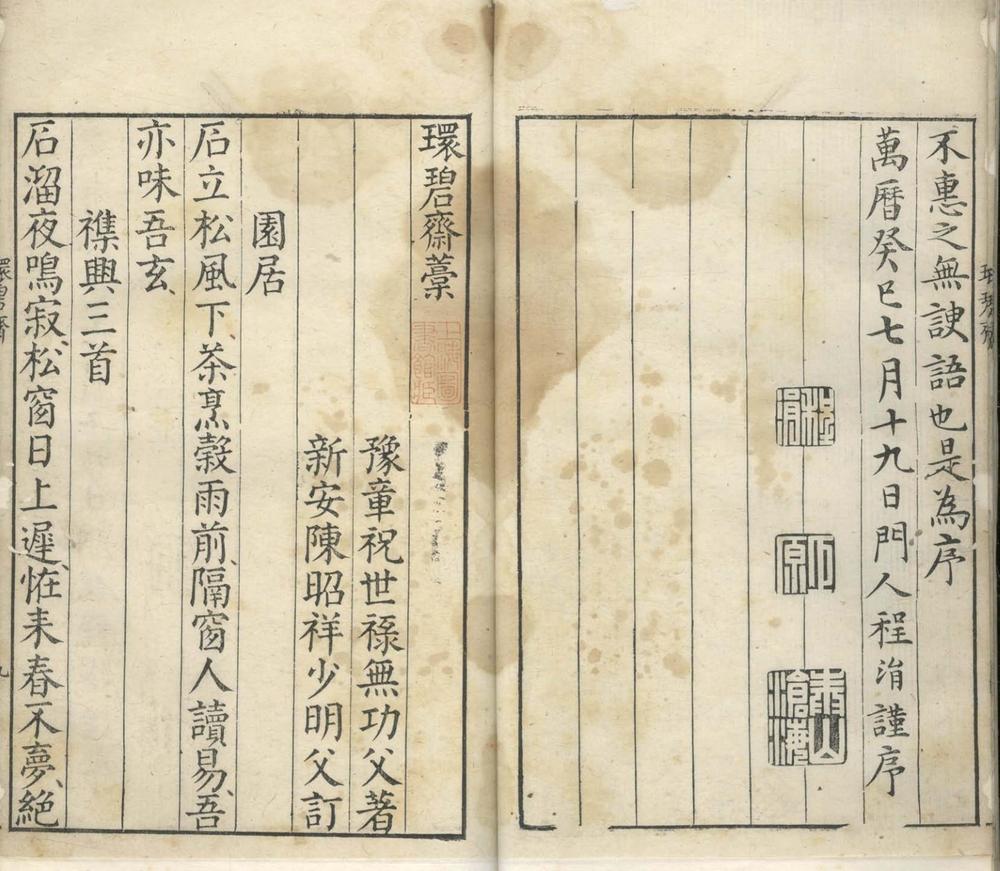 不惠之無諛語也是為序
萬曆癸巳七月十九日門人程涓謹序
環碧齋藁
豫章祝世祿無功父著
新安陳昭祥少明父訂
園居
石立松風下、茶烹穀雨前、隔窗人讀易、吾
亦味吾玄、
襍興三首
石溜夜鳴寂、松窗日上遲、恠来春不夢、絕